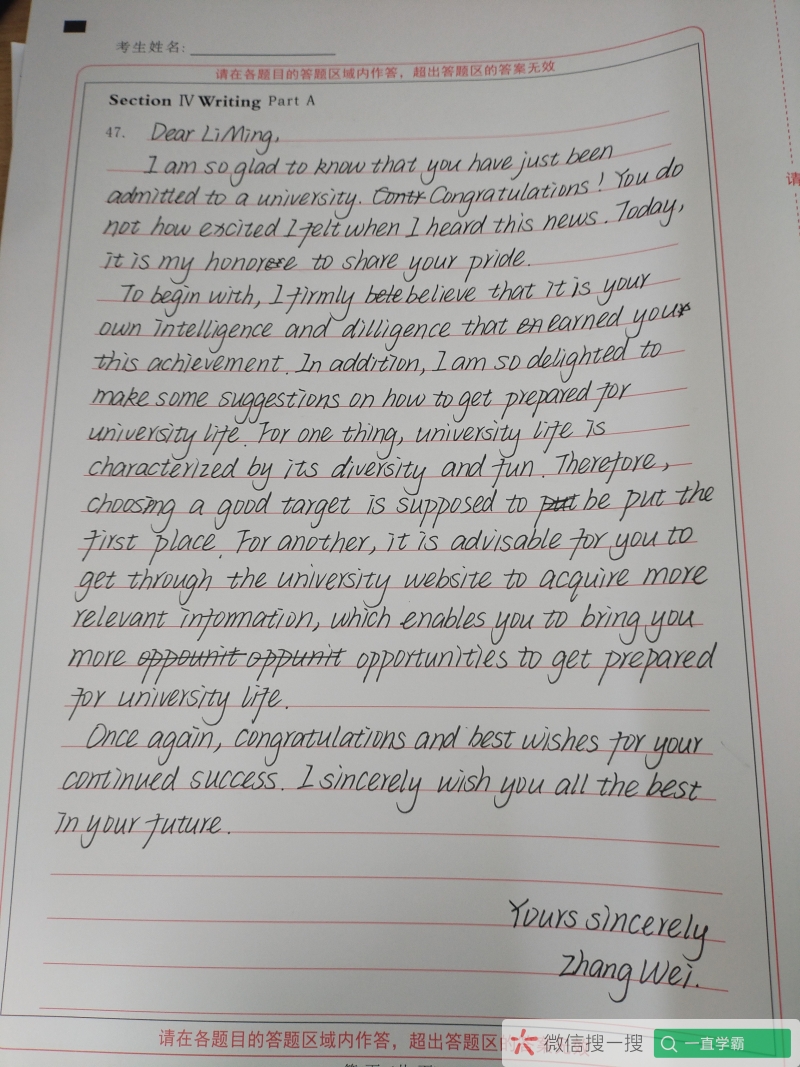 考生姓名:
请在各题目的答题区域内作答，超出答题区的答案无效
Section IV Writing Part A
47. Dear Li Ming,
I am so glad to know that you have just been
admitted to a university. Contr Congratulations! You do
not how excited I felt when I heard this news. Today,
it is my honor to share your pride.
To begin with, I firmly bele believe that it is your
own intelligence and dilligence that en earned your
this achievement. In addition, I am so delighted to
make some suggestions on how to get prepared for
university life. For one thing, university life is
characterized by its diversity and fun. Therefore,
choosing a good target is supposed to put be put the
first place. For another, it is advisable for you to
get through the university website to acquire more
relevant information, which enables you to bring you
more oppounit oppunit opportunities to get prepared
for university life.
Once again, congratulations and best wishes for your
continued success. I sincerely wish you all the best
in your future.
Yours sincerely
Zhang Wei.
请在各题目的答题区域内作答，超出答题区
微信搜一搜
一直学霸
请